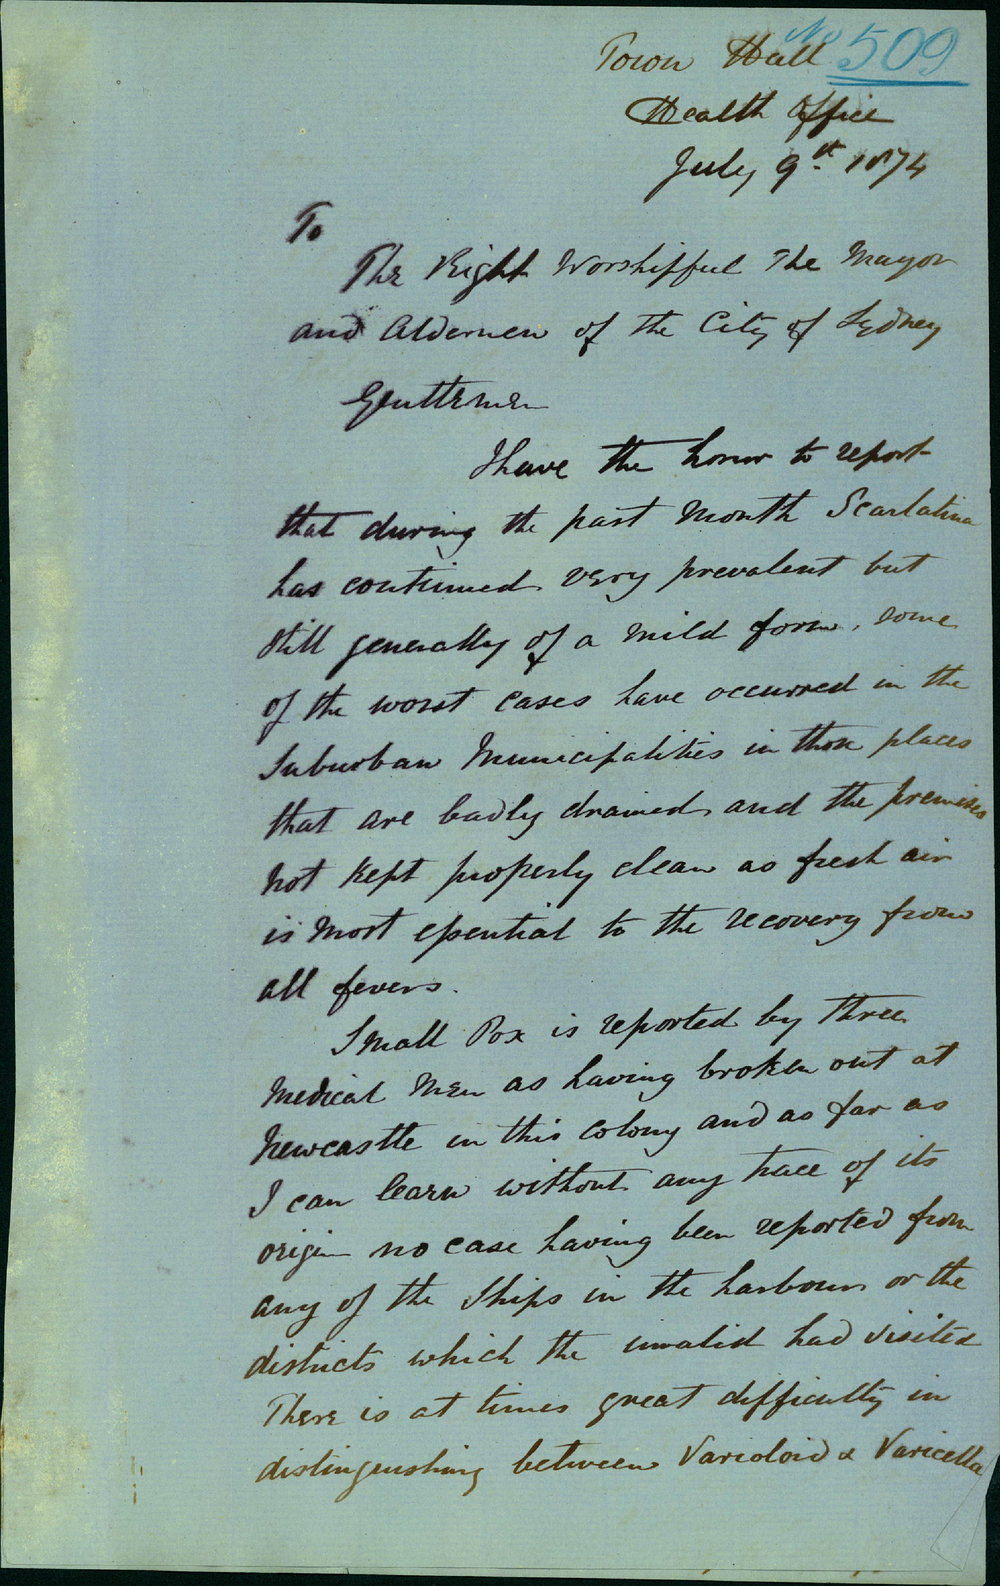 No 509
Town Hall
Health Office
July 9th 1874
To
The Right Worshipful The Mayor
and Aldermen of the City of Sydney
Gentlemen
I have the honor to report
that during the past Month Scarlatina
has continued very prevalent but
still generally of a mild form, some
of the worst cases have occurred in the
Suburban Municipalities in those places
that are badly drained and the premises
not kept properly clean as fresh air
is most essential to the recovery from
all fevers.
Small Pox is reported by three
Medical Men as having broken out at
Newcastle in this colony and as far as
I can learn without any trace of its
origin no case having been reported from
any of the Ships in the harbour or the
districts which the invalid had visited
There is at times great difficulty in
distinguishing between Varioloid & Varicella